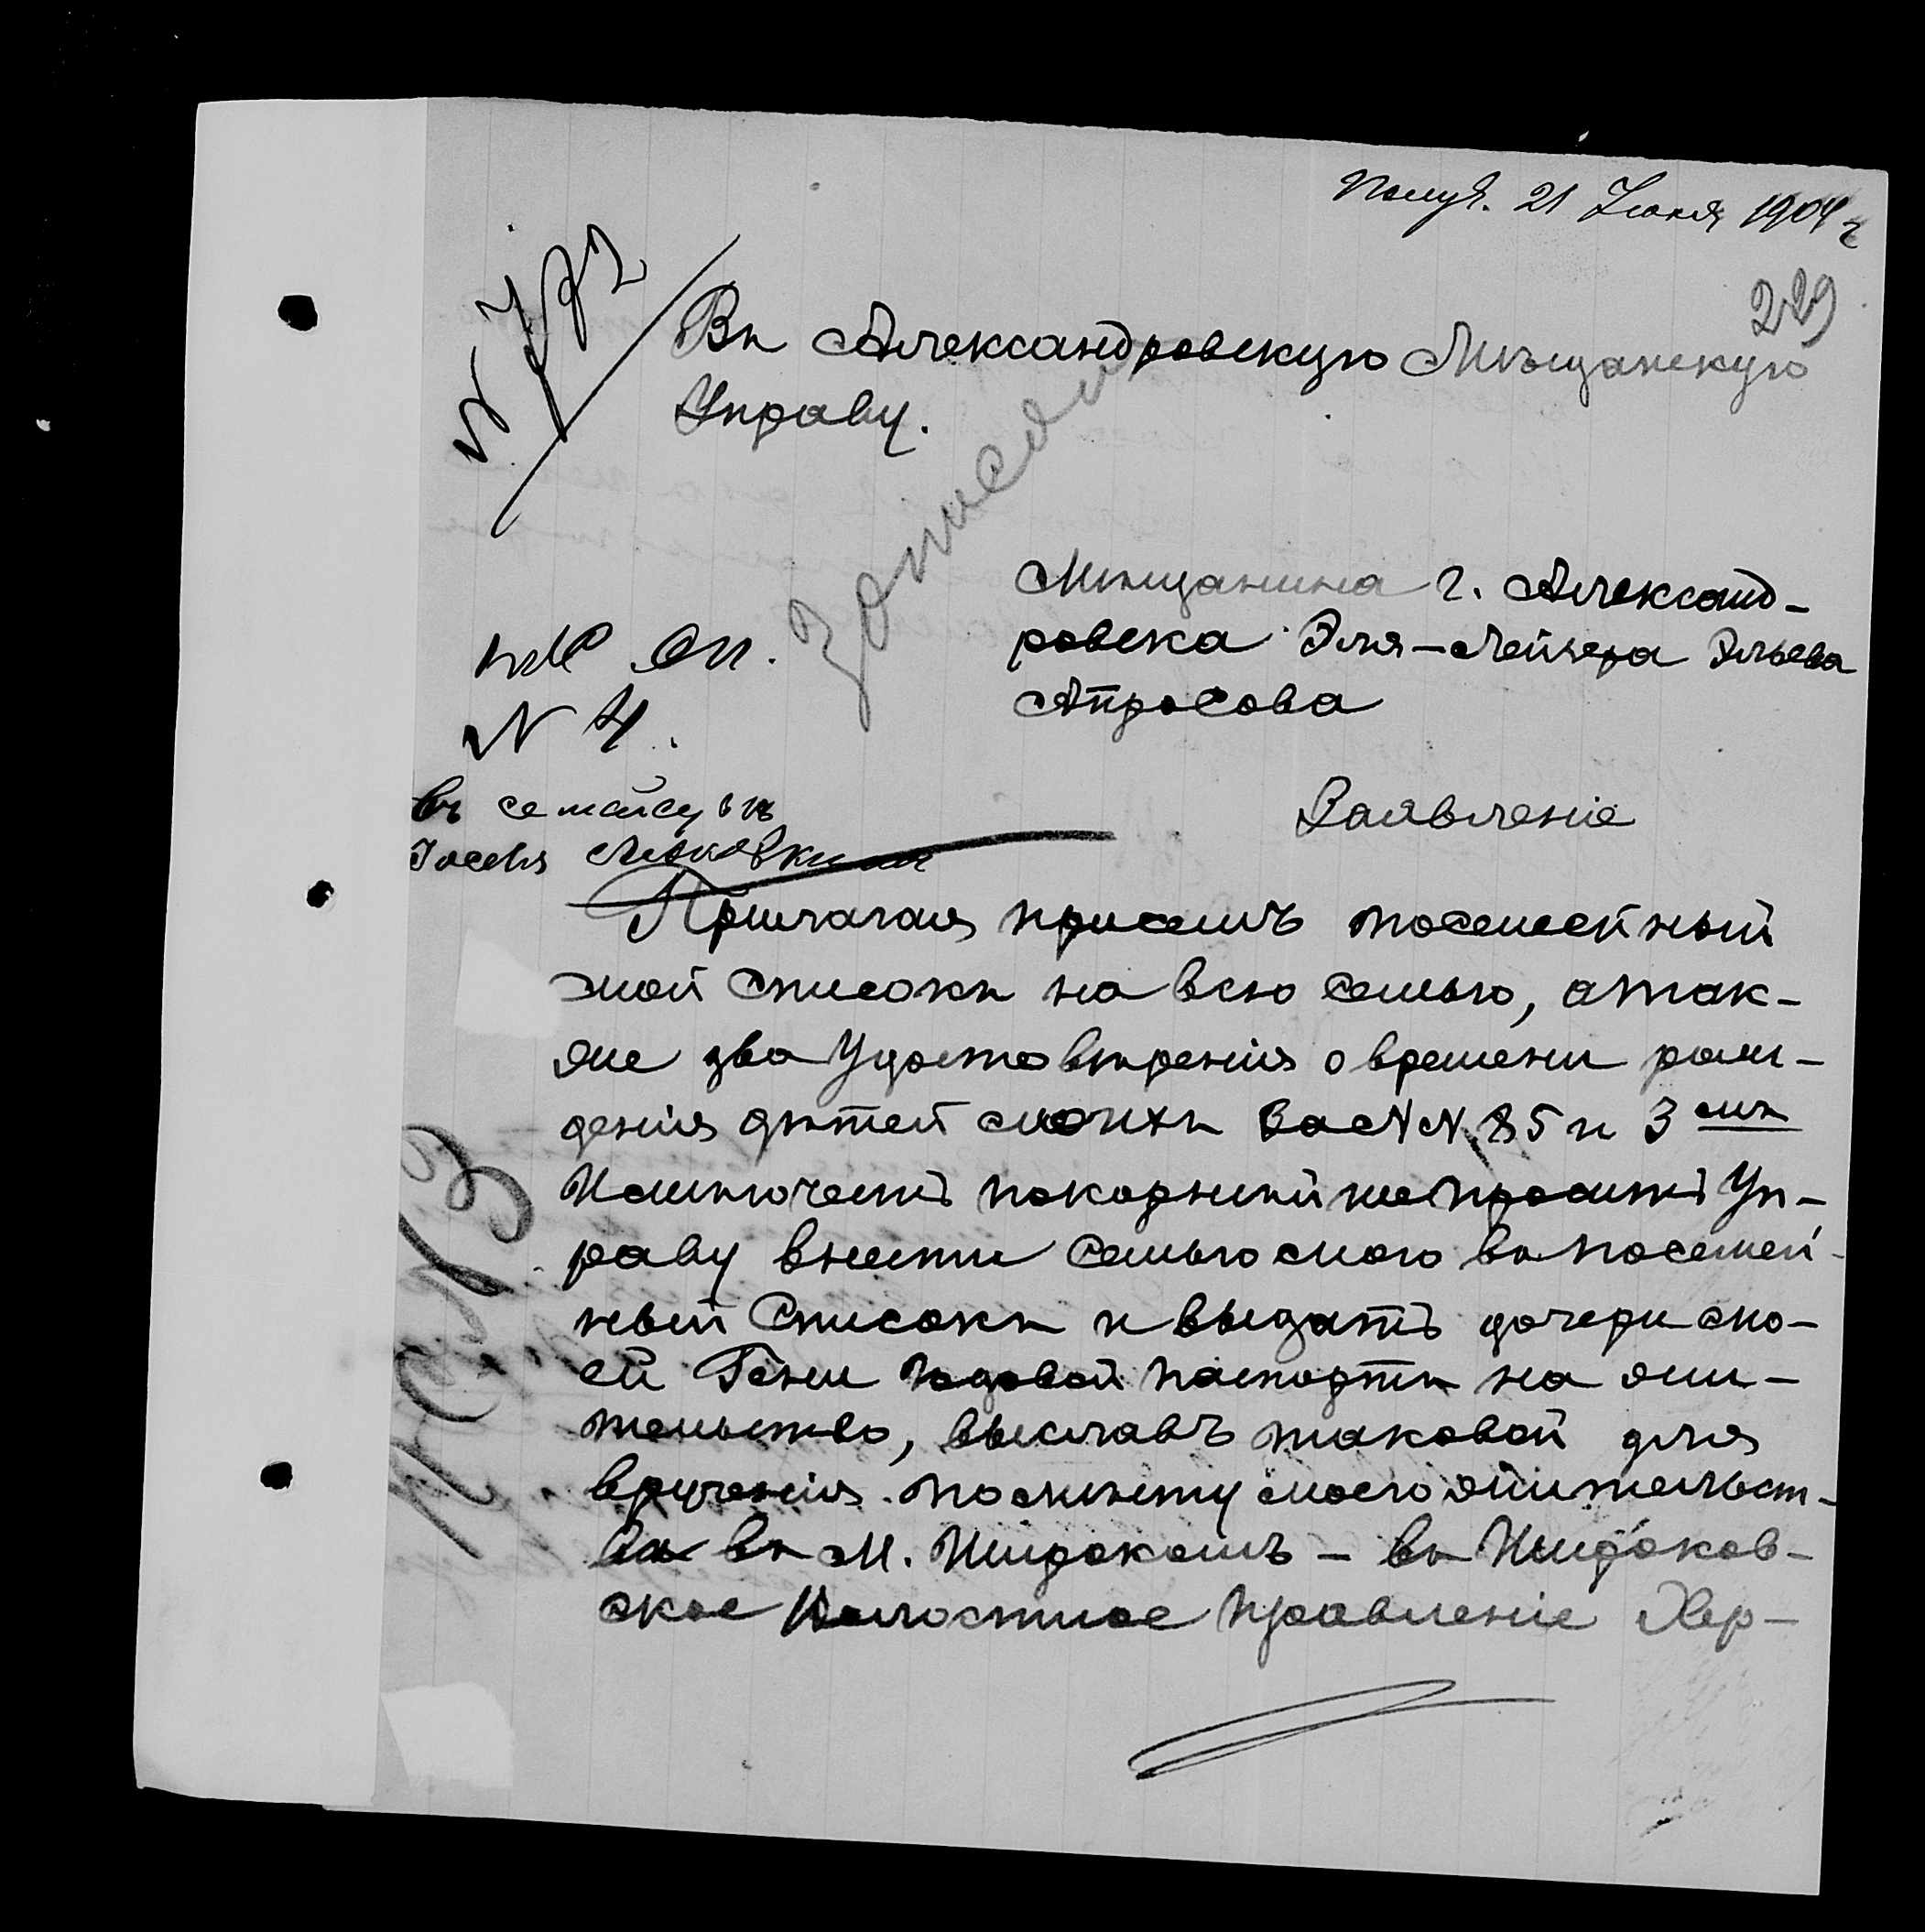 Получ. 21 Іюня 1904 г
229
Въ Александровскую Мѣщанскую
Управу.
Мѣщанина г. Александ-
ровска Эля-Лейзера Эльева
Атрасова
№ 4.
въ семейству
Заявленіе
Прилагая присемъ посемейный
мой списокъ на всю семью, атак-
же два Удостовѣренія о времени рож-
денія дѣтей моихъ за №№ 85 и 3 мъ
покорнѣйше просить Уп-
раву внести семью мою въ посемей-
ный списокъ и выдать дочери мо-
ей Гени годовой паспортъ на жи-
тельство, выславъ таковой для
врученія помѣсту моего жительст-
ва въ м. Широкомъ - въ Широков-
ское Волостное Правленіе Хер-